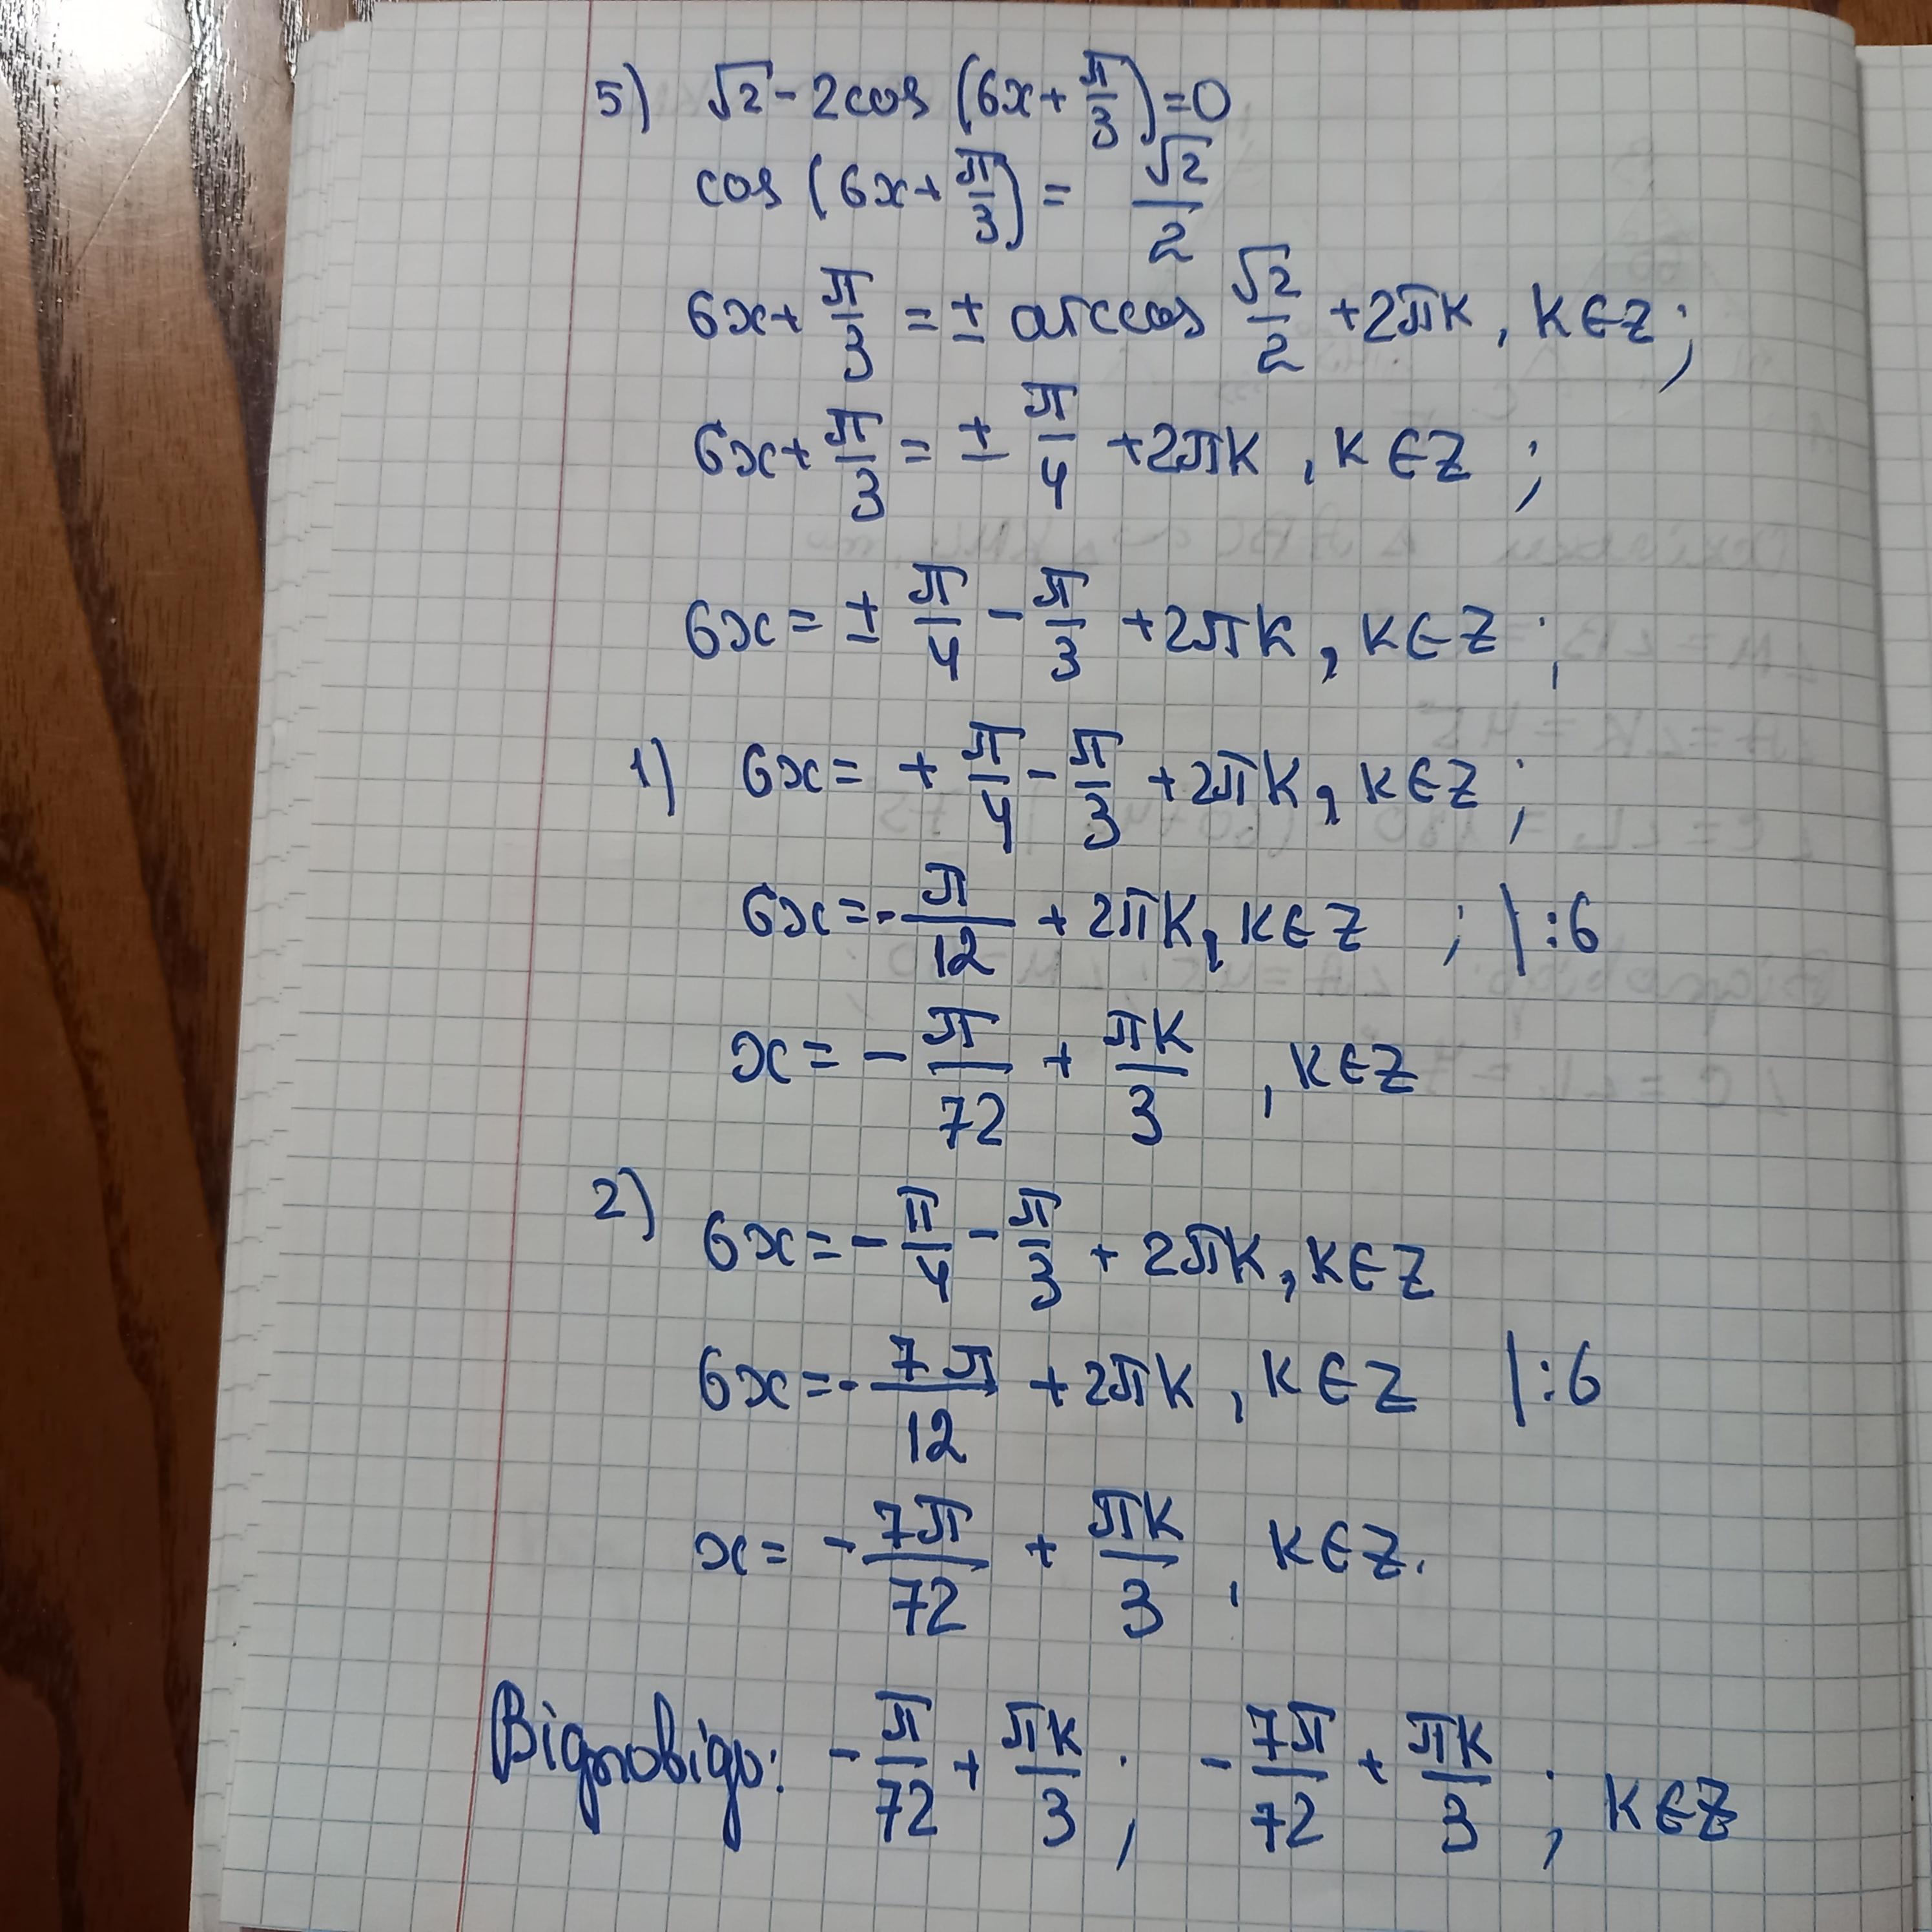 5) √2 - 2cos (6x + π/3) = 0
cos (6x + π/3) = √2/2
6x + π/3 = ± arccos √2/2 + 2πk, k ∈ Z;
6x + π/3 = ± π/4 + 2πk, k ∈ Z;
6x = ± π/4 - π/3 + 2πk, k ∈ Z;
1) 6x = + π/4 - π/3 + 2πk, k ∈ Z;
6x = - π/12 + 2πk, k ∈ Z; |:6
x = - π/72 + πk/3, k ∈ Z
2) 6x = - π/4 - π/3 + 2πk, k ∈ Z
6x = - 7π/12 + 2πk, k ∈ Z |:6
x = - 7π/72 + πk/3, k ∈ Z.
Відповідь: - π/72 + πk/3; - 7π/72 + πk/3; k ∈ Z